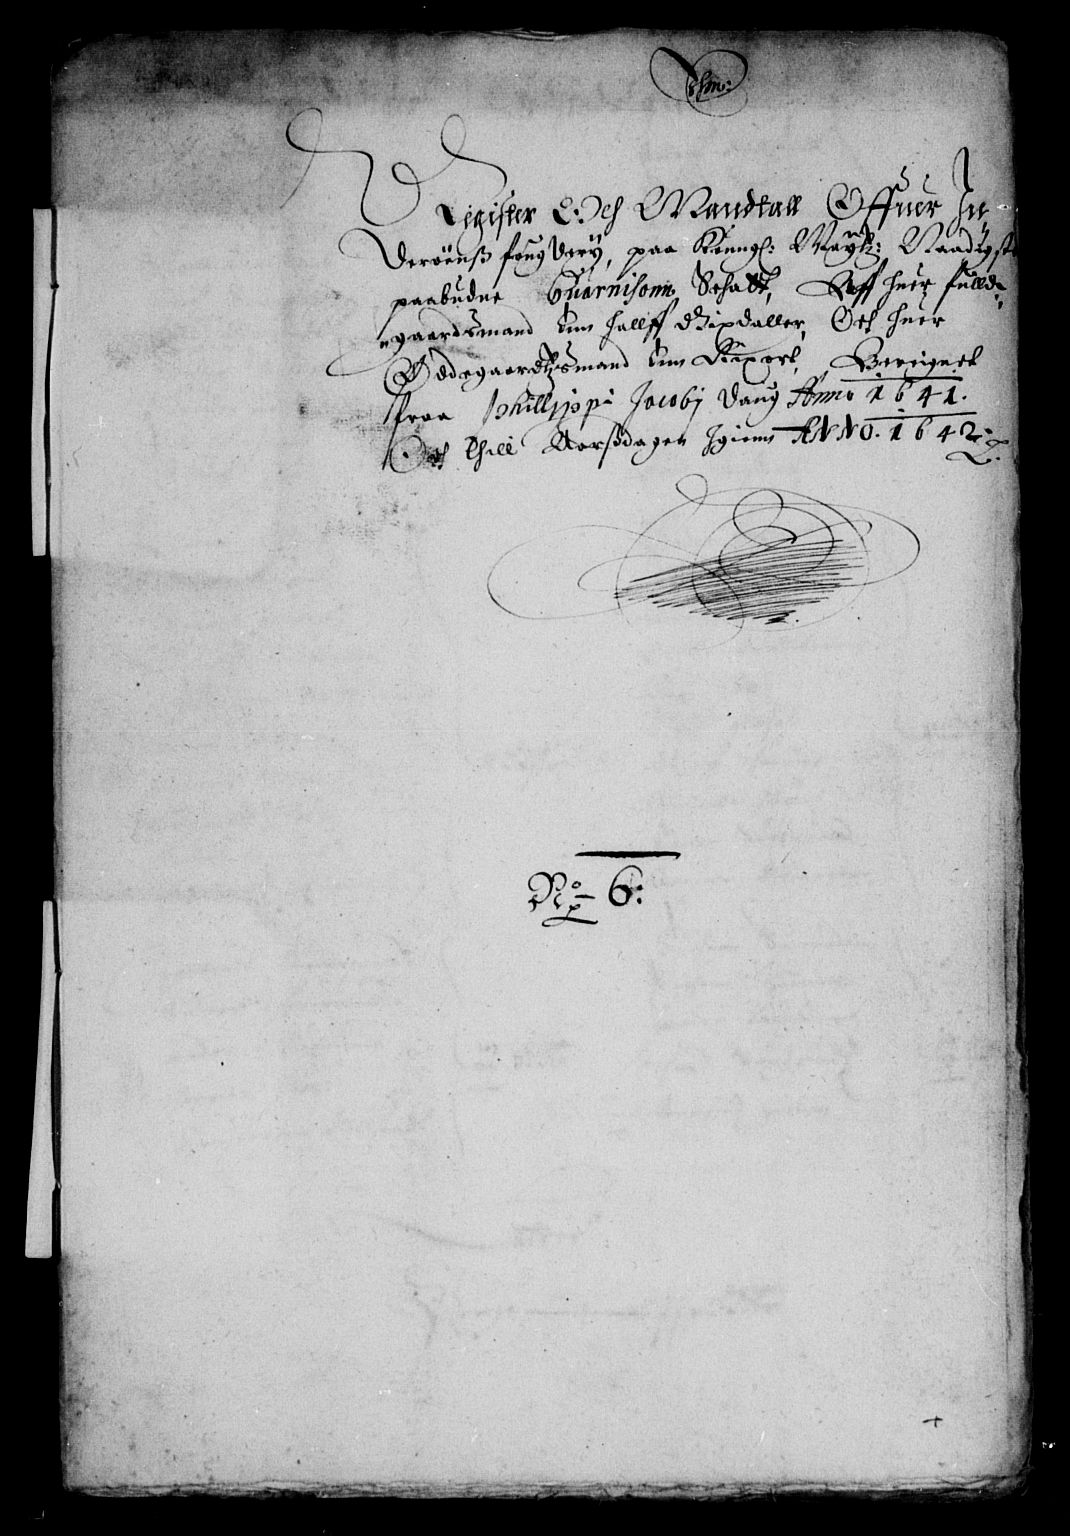 Register Och Mandtall Offuer In
deröens fougderÿ, paa Konngl: Maytz: Naadigste
paabudne Guarnisonn Schatt, Aff huer fulld
gaardsmand Enn hallff Rixdaller, Och huer
Ødegaardtzsmand Enn Rixort, Bereignet
fraa Phillippi Jacobj daug Anno 1641.
Och thill Aarsdagen Igienn ANNO. 1642.
No 6: